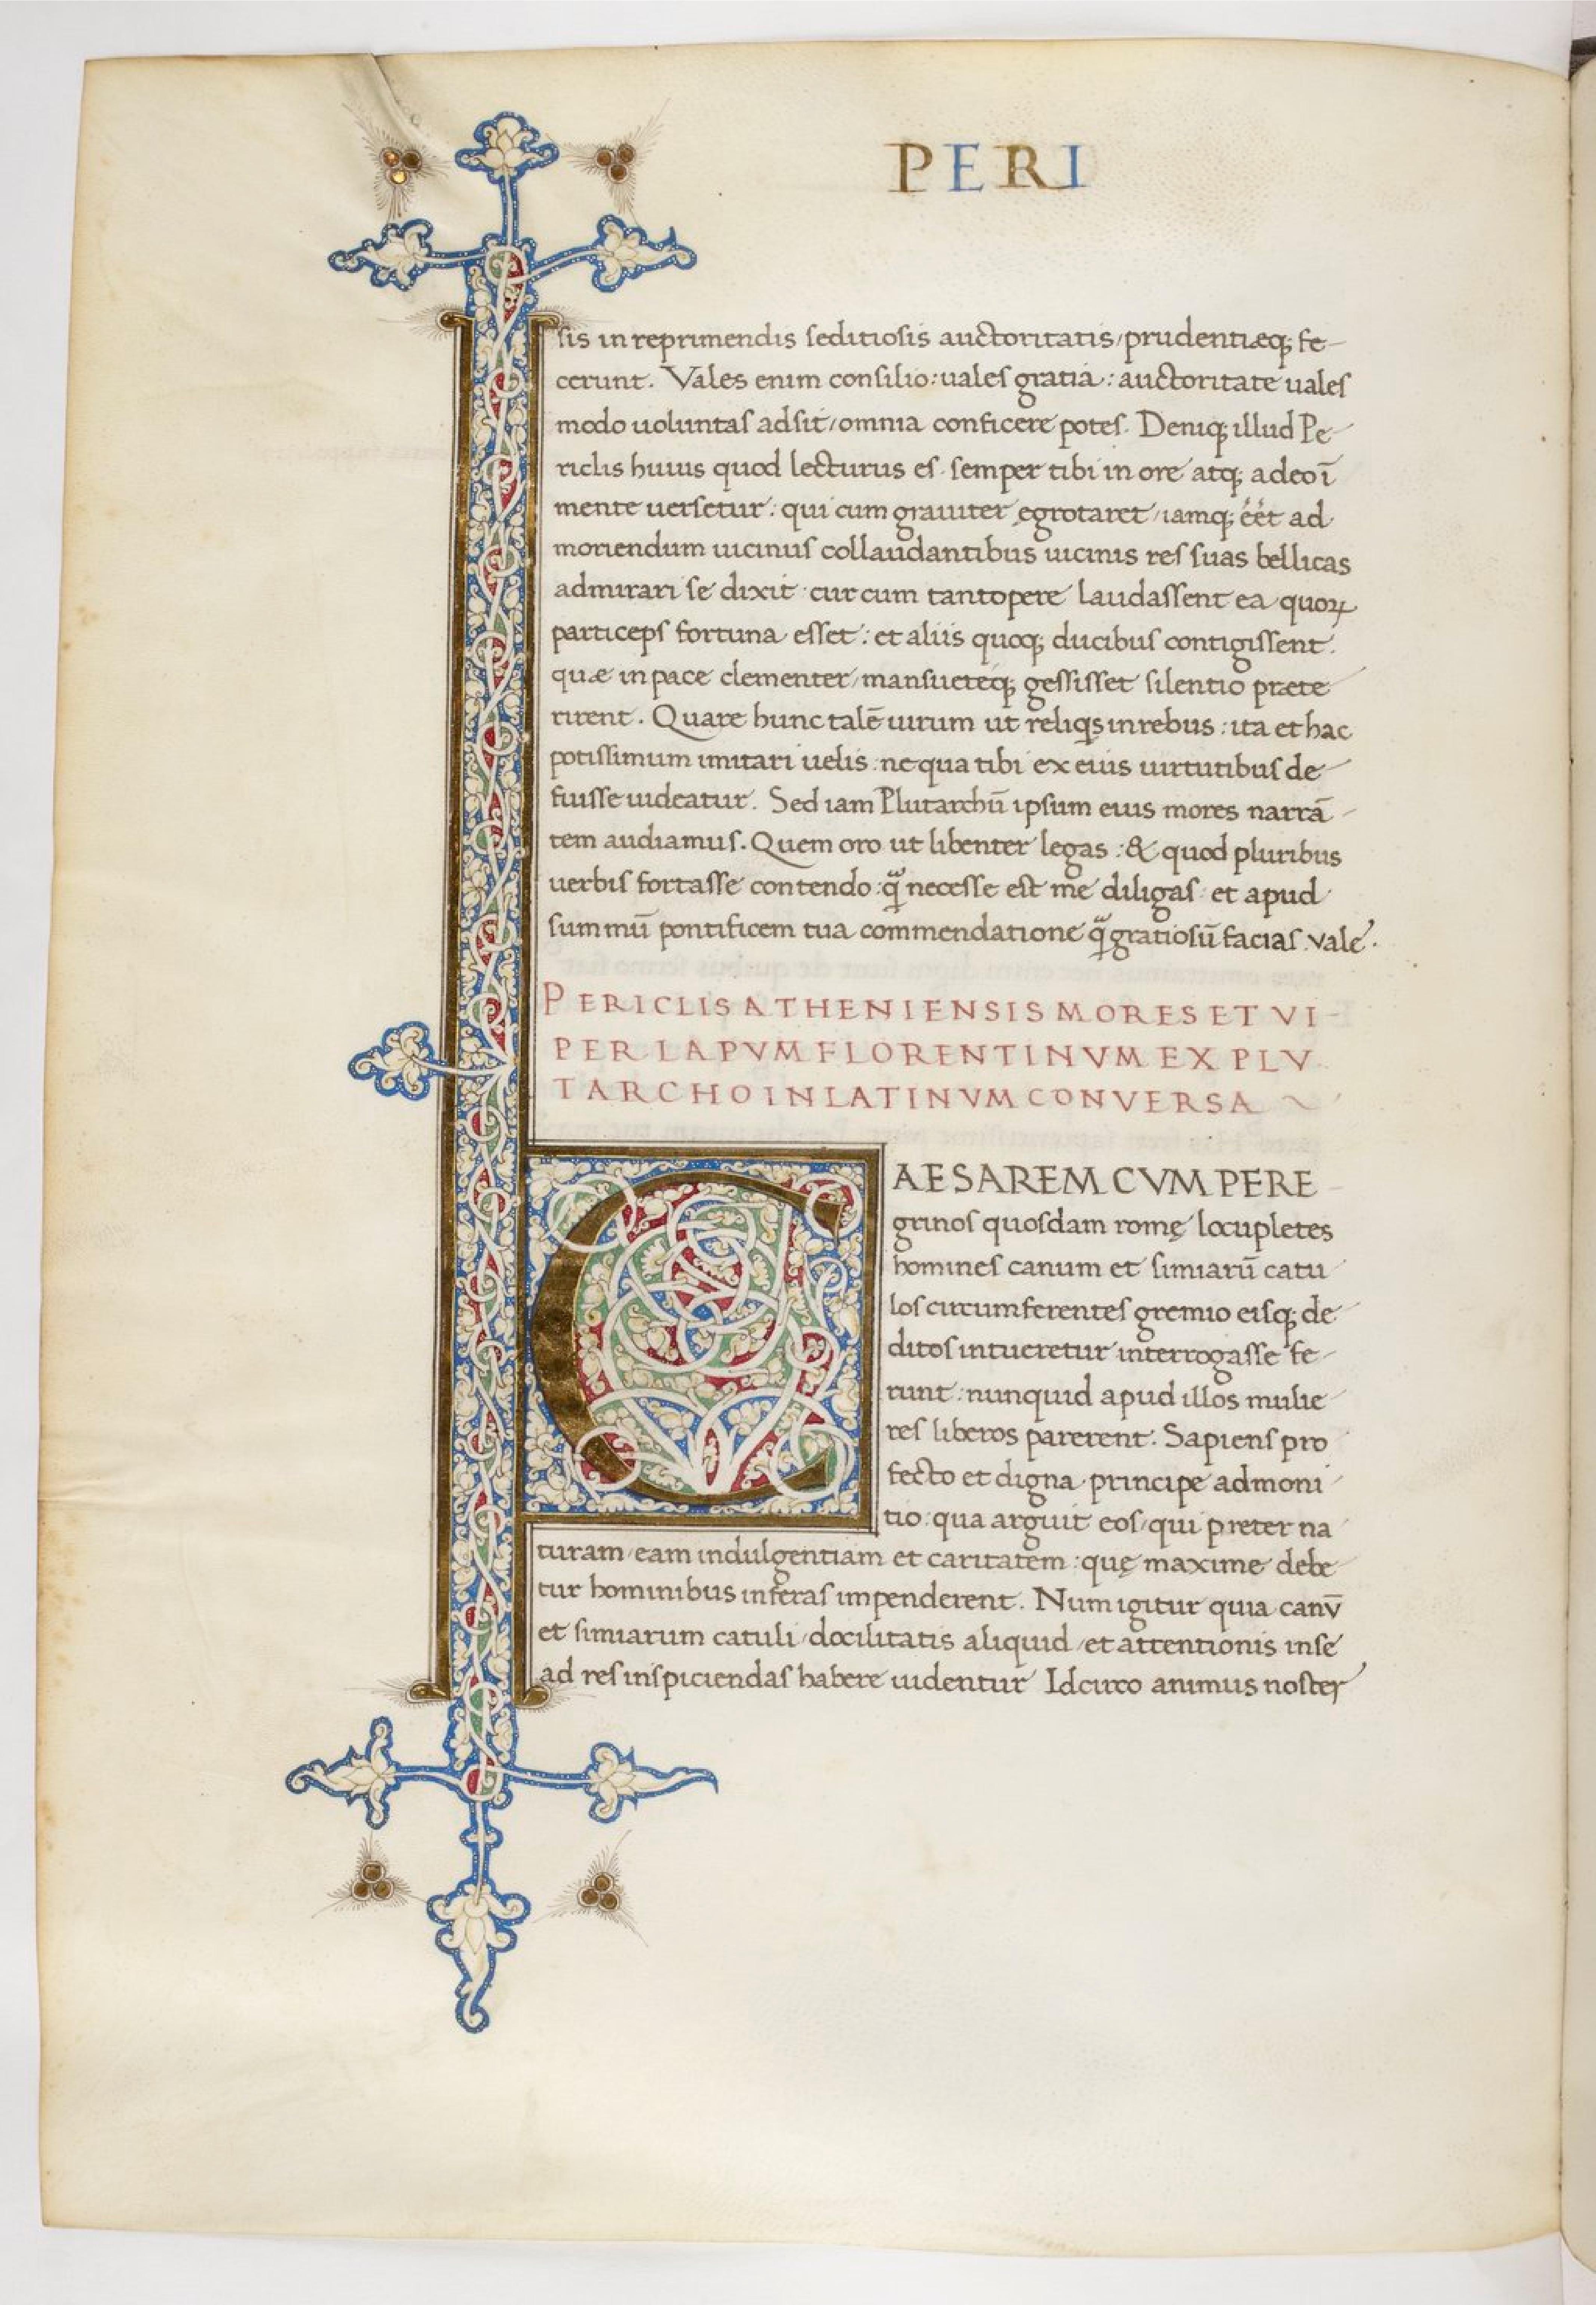 PERI
sis in reprimendis seditiosis auctoritatis/prudentiæq; fe-
cerunt. Vales enim consilio: uales gratia: auctoritate uales
modo uoluntas adsit/omnia conficere potes. Deniq; illud Pe-
riclis huius quod lecturus es. semper tibi in ore atq; adeo ī
mente uersetur: qui cum grauiter ęgrotaret/iamq; éét ad
moriendum uicinus collaudantibus uicinis res suas bellicas
admirari se dixit. cur cum tantopere laudassent ea quoꝝ
particeps fortuna esset: et aliis quoq; ducibus contigissent.
quæ in pace clementer/mansueteq; gessisset silentio præte-
rirent. Quare hunc talē uirum ut reliq̣s in rebus: ita et hac
potissimum imitari uelis. ne qua tibi ex eius uirtutibus de-
fuisse uideatur. Sed iam Plutarchū ipsum eius mores narrā-
tem audiamus. Quem oro ut libenter legas: & quod pluribus
uerbis fortasse contendo: q̃ necesse est me diligas. et apud
summū pontificem tua commendatione q̃ gratiosū facias. vale.
PERICLIS ATHENIENSIS MORES ET VI-
PER LAPVM FLORENTINVM EX PLV
TARCHO IN LATINVM CONVERSA
CAESAREM CVM PERE
grinos quosdam romę locupletes
homines canum et simiarū catu
los circumferentes gremio eisq; de-
ditos intueretur interrogasse fe-
runt: nunquid apud illos mulie
res liberos parerent. Sapiens pro
fecto et digna principe admoni
tio: qua arguit eos/qui preter na
turam/eam indulgentiam et caritatem: quę maxime debe-
tur hominibus in feras impenderent. Num igitur quia canv̄
et simiarum catuli/docilitatis aliquid/et attentionis in se
ad res inspiciendas habere uidentur Idcirco animus noster